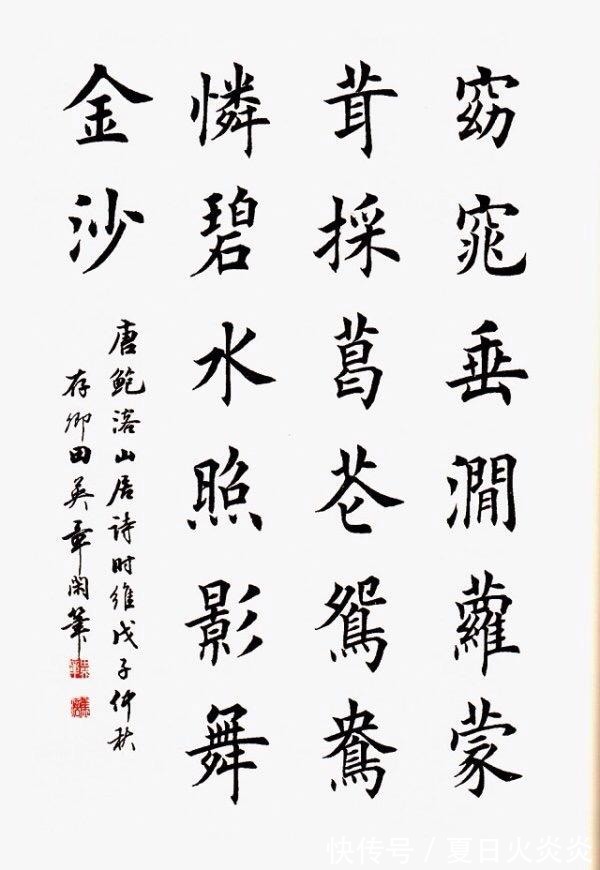 窈窕垂澗蘿蒙
茸採葛花鴛鴦
憐碧水照影舞
金沙
唐鮑溶山居詩时維戊子仲秋
存卿田英章閑筆
快传号 / 夏日火炎炎